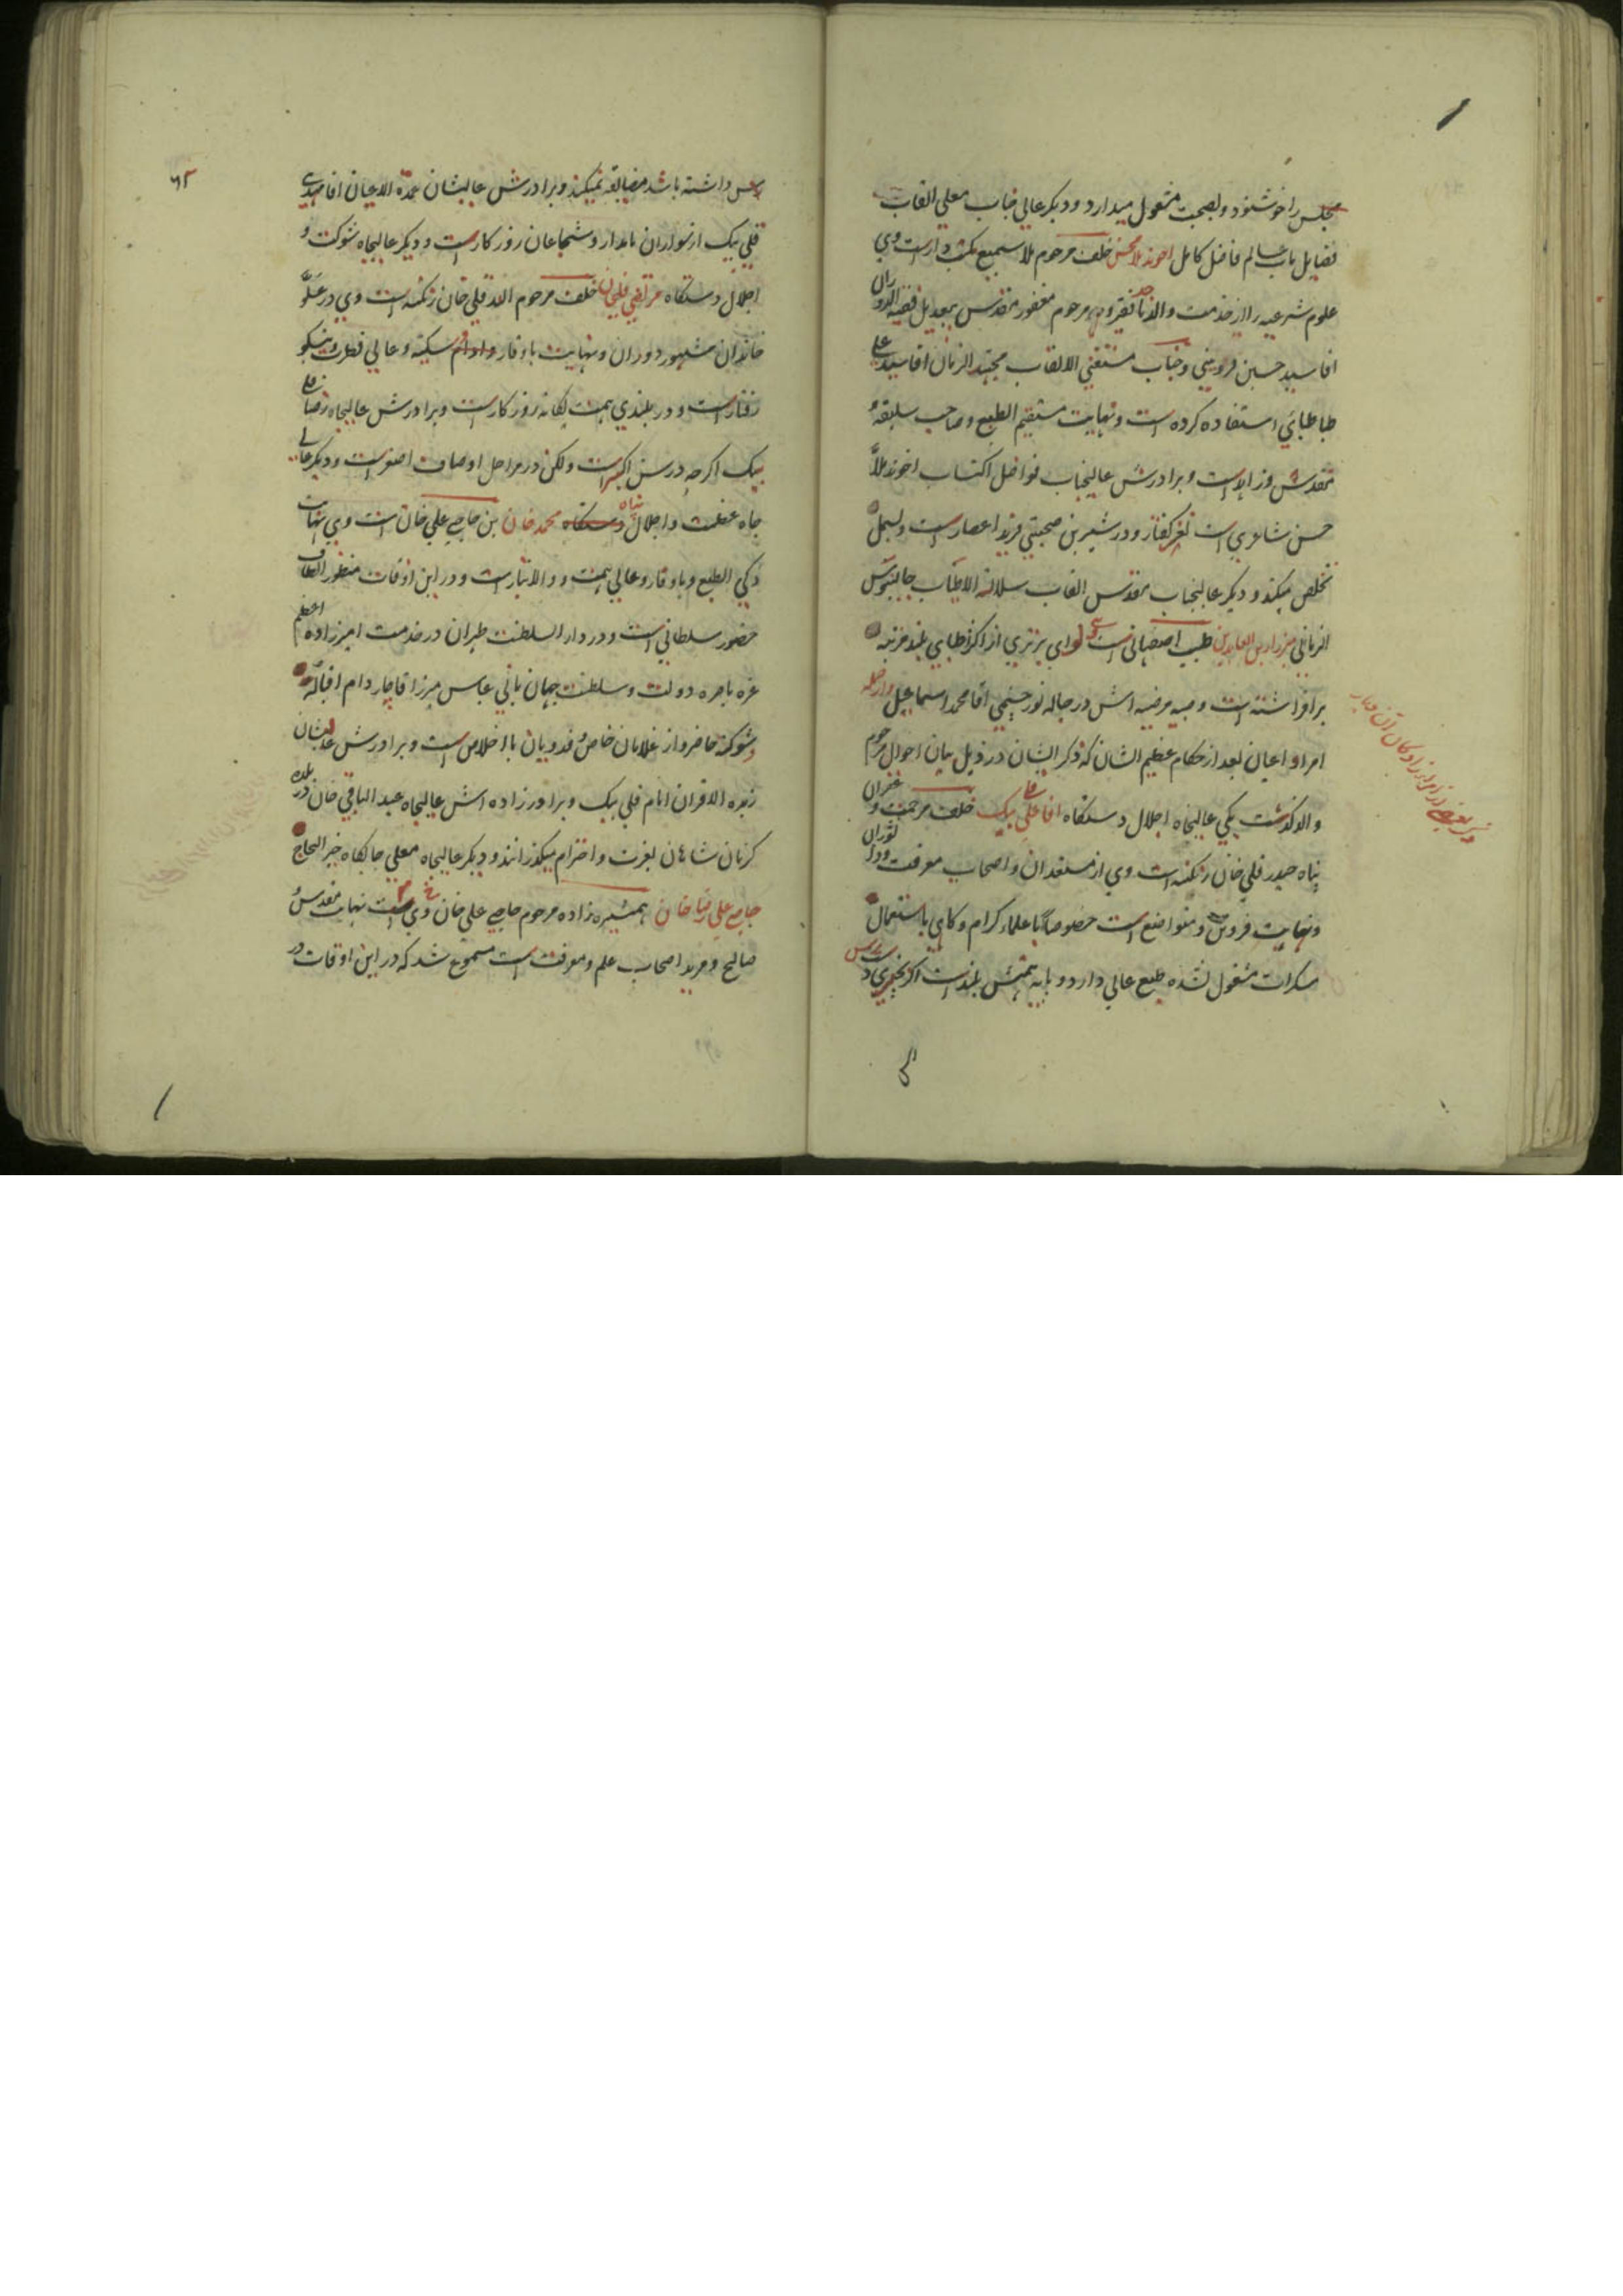 مجلس را خوشنود و بصحبت مشغول میدارد و دیکر عالی جناب معلی القاب
فضایل باب عالم فاضل کامل اخوند ملا محسن خلف مرحوم ملا سمیع است وی
علوم شرعیه را از خدمت والد ماجد فقیر و مرحوم مغفور مقدس
اقا سید حسین قزوینی و جناب مستغنی الالقاب مجتهد الزمان اقا سید علی
طباطبائی استفاده کرده است و نهایت مستقیم الطبع و صاحب سلیقه و
تقدس است و برادرش عالیجناب فواضل اکتساب اخوند ملا
حسن شاعری است نغز کفتار و در شیرین صحبتی فرید اعصار است و بسمل
تخلص میکند و دیکر عالیجناب مقدس القاب سلالة الاطیاب جالینوس
الزمانی میرزا زین العابدین طبیب اصفهانی است وی لوای برتری از اکثر اطبای بلند مرتبه
برافراشته است و صبیه مرضیه اش در حباله نور چشمی اقا محمد اسماعیل و از جمله
امرا و اعیان بعد از حکام عظیم الشان که ذکر ایشان در ذیل بیان احوال مرحوم
والد کذشت یکی عالیجاه اجلال دستکاه اقا علی بیک خلف مرحمت و غفران
پناه حیدر قلی خان زنکنه است وی از مستعدان و اصحاب معرفت
و نهایت فروتن و متواضع است خصوصا با علماء کرام و کاهی باستعمال
سکرات مشغول نشده طبع عالی دارد و پایه همتش بلند است اکر بخیری
داشته باشد مضایقه نمیکند و برادرش عالیشان عمدة الاعیان اقا مهدی
قلی بیک از سواران نامدار و شجاعان روزکار است و دیکر عالیجاه شوکت و
اجلال دستکاه مرتضی قلیخان خلف مرحوم الله قلی خان زنکنه است وی در علو
خاندان مشهور دوران و نهایت باوقار و سکینه و عالی فطرت و نیکو
رفتار است و در بلندی همت یکانه روزکار است و برادرش عالیجاه رضا قلی
بیک اکرچه در سن اکبر است ولکن در مراحل اوصاف اصغر است و دیکر عالی
جاه عظمت و اجلال پناه محمد خان بن حاجی علی خان است وی بنهایت
ذکی الطبع و باوقار و عالی همت و والاتبار است و در این اوقات منظور الطاف
حضور سلطانی است و در دار السلطنت طهران در خدمت امیرزاده اعظم
غره باصره دولت و سلطنت جهان بانی عباس میرزا قاجار دام اقباله
و شوکته حاضر و از غلامان خاص و فدویان با اخلاص است و برادرش عالیشان
زبدة الاقران امام قلی بیک و برادرزاده اش عالیجاه عبد الباقی خان در بلده
کرمان شاهان بعزت و احترام میکذرانند و دیکر عالیجاه معلی جایکاه خیر الحاج
حاجی علی رضا خان همشیره زاده مرحوم حاجی علی خان است وی نهایت مقدس و
صالح و مرید اصحاب علم و معرفت است مسموع شد که در این اوقات در
٦٢